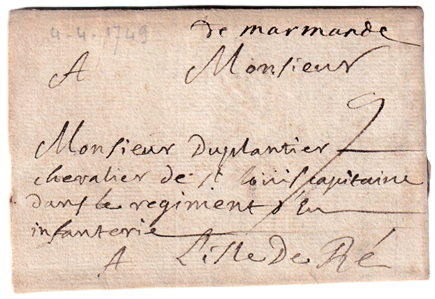 4-4-1749
De marmande
A Monsieur
Monsieur Duplantier
chevalier de st louis capitaine
dans le regiment d'Eu
infanterie
A L'isle De Ré
9